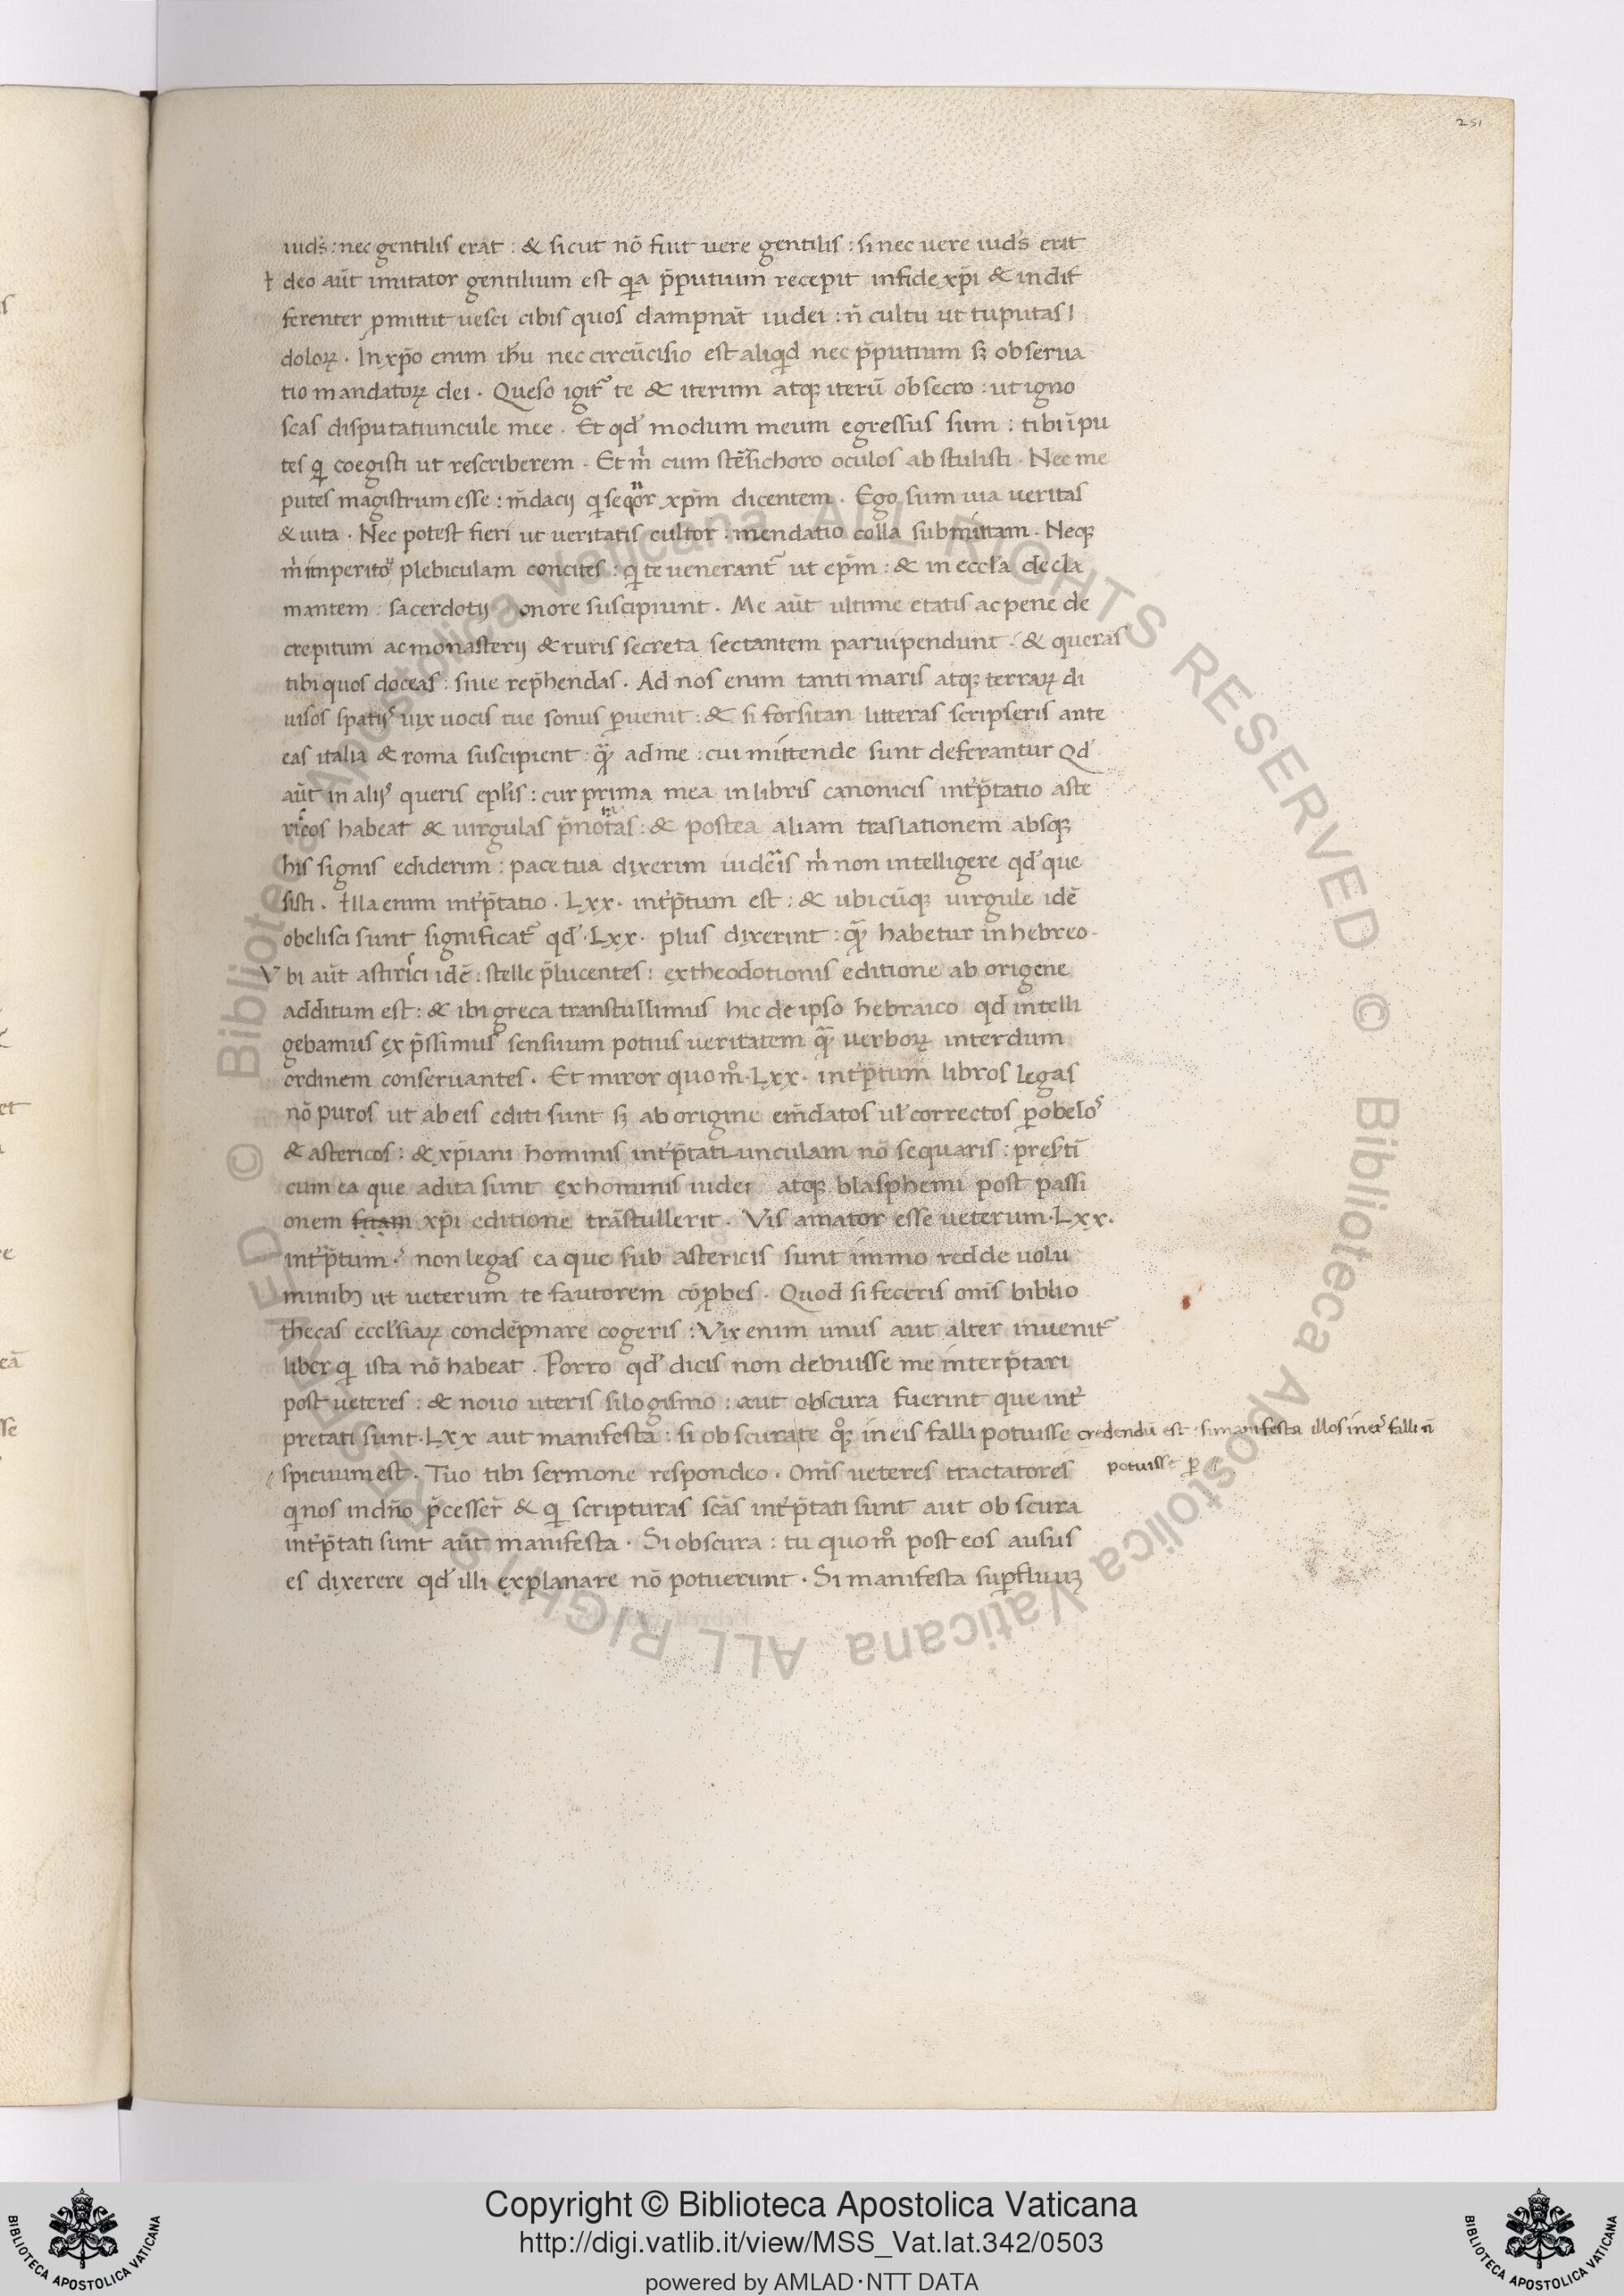 251
iuds̄ : nec gentilis erat : & sicut nō fuit uere gentilis : si nec uere iuds̄ erit
I deo aūt imitator gentilium est qia p̄putium recepit infide xp̄i & indif
ferenter pmittit uesci cibis quos dampnāt iudei : n̄ cultu ut tuputas i
doloꝝ . In xp̄o enim ih̄u nec circūcisio est aliqid nec p̄putium sꝫ obserua
tio mandatoꝝ dei . Queso igit᷑ te & iterum atqꝫ iterū obsecro : ut igno
scas disputatiuncule mee . Et qd̓ modum meum egressus sum : tibi īpu
tes qi coegisti ut rescriberem . Et m̓ cum stēsichoro oculos abstulisti . Nec me
putes magistrum esse : m̄dacij qi seqor xp̄m dicentem . Ego sum uia ueritas
& uita . Nec potest fieri ut ueritatis cultor : mendatio colla submittam . Neqꝫ
m̓ imperitoꝝ plebiculam concites : qi te uenerant᷑ ut ep̄m : & in eccl̓a decla
mantem : sacerdotij onore suscipiunt . Me aūt ultime etatis ac pene de
crepitum ac monasterij & ruris secreta sectantem paruipendunt . & queras
tibi quos doceas : siue rep̄hendas . Ad nos enim tanti maris atqꝫ terraꝝ di
uisos spatijs uix uocis tue sonus ꝑuenit : & si forsitan litteras scripseris ante
eas italia & roma suscipient : qꝫ̄ ad me : cui mittende sunt deferantur Qd̓
aūt in alijs queris epl̓is : cur prima mea in libris canonicis int̓p̄tatio aste
ricos habeat & uirgulas p̄notātas : & postea aliam traslationem absqꝫ
his signis ediderim : pace tua dixerim uidēis m̓ non intelligere qd̓ que
sisti . Illa enim int̓p̄tatio . Lxx . int̓p̄tum est : & ubicūqꝫ uirgule idē
obelisci sunt significat᷑ qd̓ . Lxx . plus dixerint : qꝫ̄ habetur in hebreo .
V bi aūt astirici idē : stelle p̄lucentes : ex theodotionis editione ab origene
additum est : & ibi greca transtullimus hic de ipso hebraico qd̓ intelli
gebamus exp̄ssimus sensuum potius ueritatem qꝫ̄ uerboꝝ interdum
ordinem conseruantes . Et miror quom̊ . Lxx . int̓p̄tum libros legas
nō puros ut ab eis editi sunt sꝫ ab origine em̄datos ul̓ correctos ꝑ obelos
& astericos : & xp̄iani hominis int̓p̄tatiunculam nō sequaris : p̄sertī
cum ea que adita sunt ex hominis iudei atqꝫ blasphemi post passi
onem suam xp̄i editione trāstullerit . Vis amator esse ueterum . Lxx .
int̓p̄tum . non legas ea que sub astericis sunt immo redde uolu
minibꝫ ut ueterum te fautorem cōꝑbes . Quod si feceris om̄s biblio
thecas eccl̓siaꝝ condēpnare cogeris : Vix enim unus aut alter inuenit᷑
liber qi ista nō habeat . Porro qd̓ dicis non debuisse me interp̄tari
post ueteres : & nouo uteris silogismo : aut obscura fuerint que int̓
pretati sunt . Lxx aut manifesta : si obscura te qꝫ̊ in eis falli potuisse credendū est : si manifesta illos in eis falli n̄
potuisse ꝑ
spicuum est . Tuo tibi sermone respondeo . Om̄s ueteres tractatores
qi nos in dn̄o p̄cesser̄ & qi scripturas scās int̓p̄tati sunt aut obscura
int̓p̄tati sunt aūt manifesta . Si obscura : tu quom̊ post eos ausus
es dixerere qd̓ illi explanare nō potuerunt . Si manifesta suꝑfluuꝫ
Copyright © Biblioteca Apostolica Vaticana
http://digi.vatlib.it/view/MSS_Vat.lat.342/0503
powered by AMLAD·NTT DATA
BIBLIOTECA APOSTOLICA VATICANA
BIBLIOTECA APOSTOLICA VATICANA
© Biblioteca Apostolica Vaticana ALL RIGHTS RESERVED
© Biblioteca Apostolica Vaticana ALL RIGHTS RESERVED